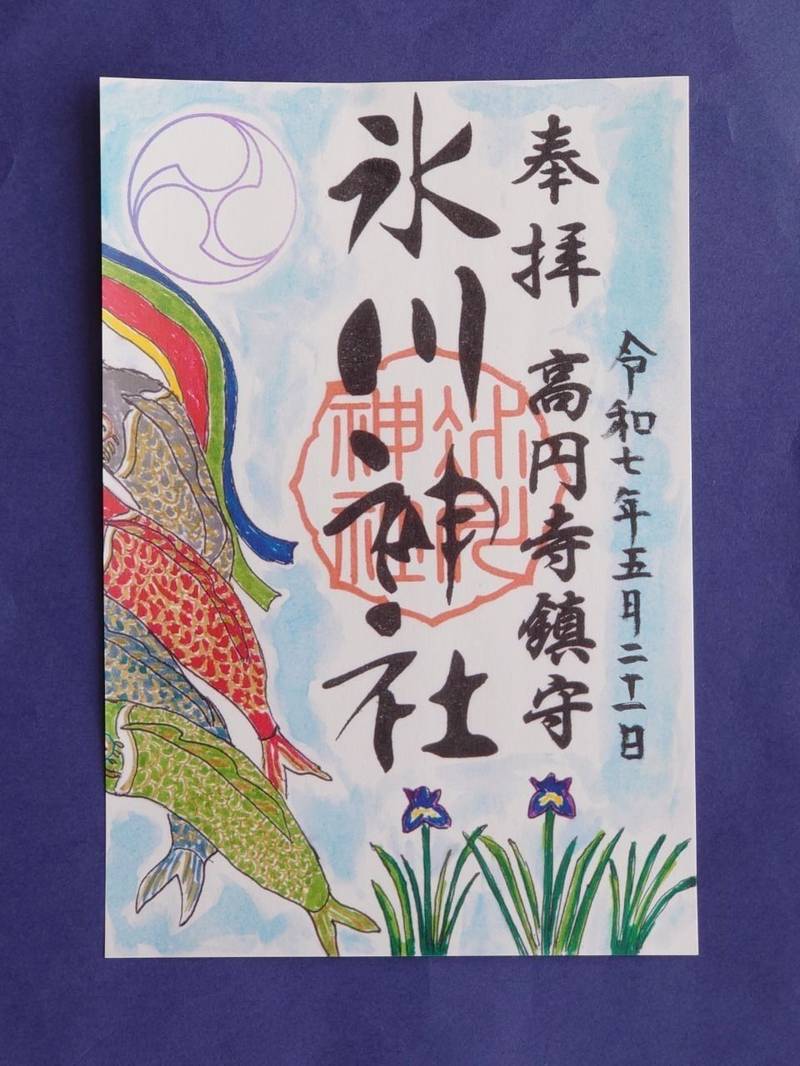 令和七年五月二十一日
奉拝 高円寺鎮守
氷川神社
氷川
神社